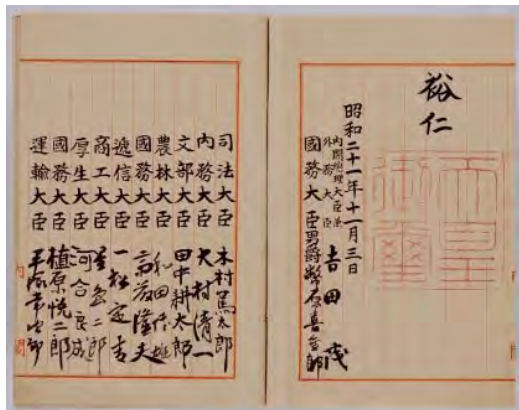 裕仁
天皇御璽
昭和二十一年十一月三日
內閣總理大臣兼
外務大臣 吉田茂
國務大臣 男爵幣原喜重郎
司法大臣 木村篤太郎
內務大臣 大村清一
文部大臣 田中耕太郎
農林大臣 和田博雄
國務大臣 斎藤隆夫
逓信大臣 一松定吉
商工大臣 星島二郎
厚生大臣 河合良成
國務大臣 植原悦二郎
運輸大臣 平塚常次郎
内閣